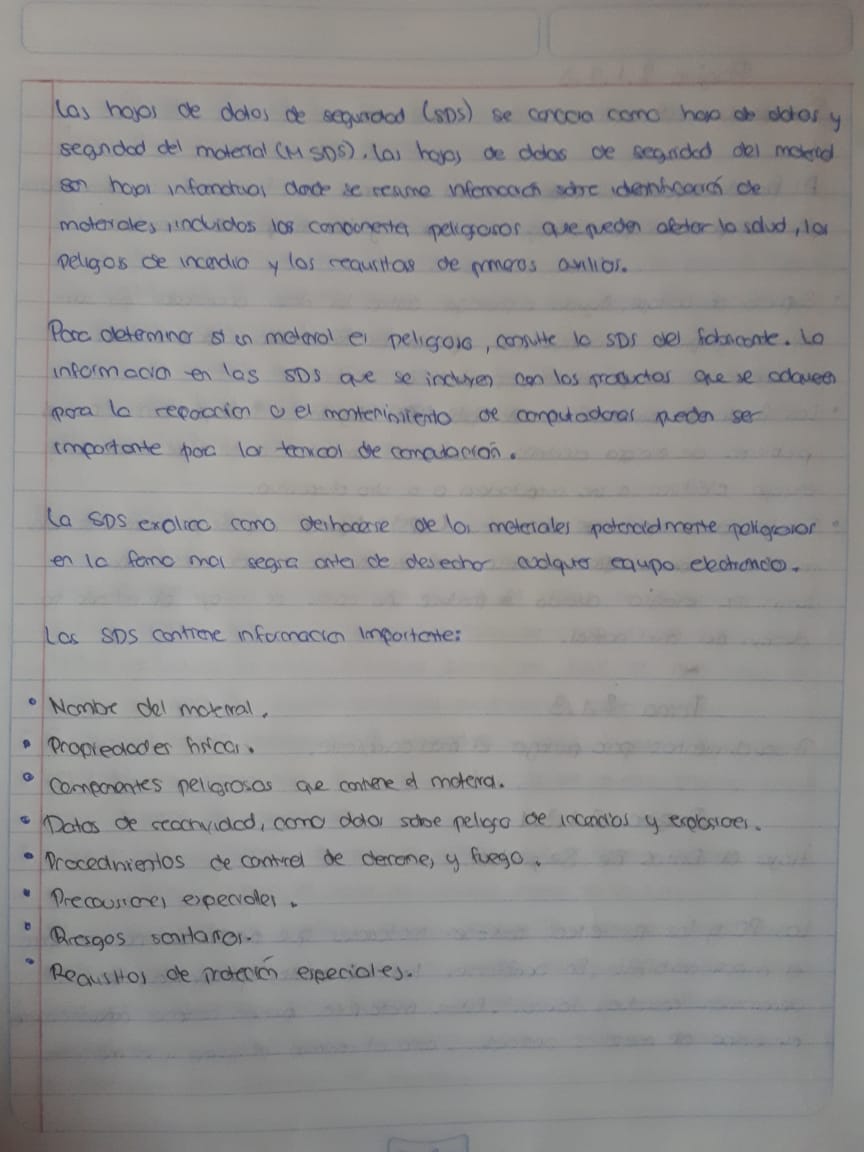 Las hojas de datos de seguridad (SDS) se conocia como hoja de datos y
seguridad del material (MSDS). Las hojas de datos de seguridad del material
son hojas informativas donde se reume informacion sobre identificación de
materiales, incluidos los componentes peligrosos que pueden afectar la salud, los
peligos de incendio y los requisitos de primeros auxilios.
Para determinar si un material es peligroso, consulte la SDS del fabricante. La
informacion en las SDS que se incluyen con los productos que se adquieen
para la reparacion o el mantenimiento de computadoras pueden ser
importante para los tecnicos de computación.
La SDS explica como deshacerse de los materiales potencialmente peligrosos
en la forma mas segura antes de desechar cualquier equipo electronico.
Las SDS contiene informacion importante:
• Nombre del material.
• Propiedades fisicas.
• Componentes peligrosos que contiene el material.
• Datos de reactividad, como datos sobre peligro de incendios y explosiones.
• Procedimientos de control de derrame, y fuego.
• Precausiones especiales.
• Riesgos sanitarios.
• Requisitos de protección especiales.